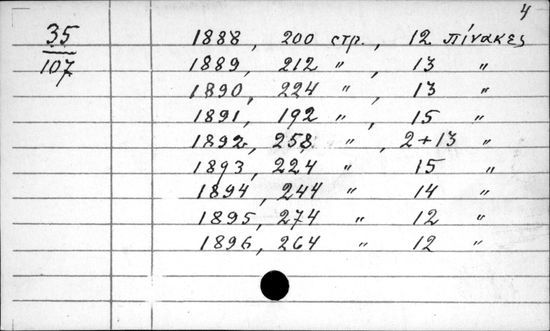 4
35 1888, 200 стр., 12 πίνακες
107 1889, 212 " , 13 "
1890, 224 " , 13 "
1891, 192 " , 15 "
1892, 258 " , 2+13 "
1893, 224 " 15 "
1894, 244 " 14 "
1895, 274 " 12 "
1896, 264 " 12 "